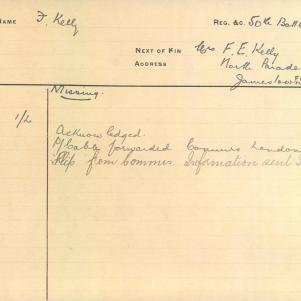 NAME F. Kelly REG. &c. 50th Batt
NEXT OF KIN Mrs F. E. Kelly
ADDRESS North Parade
Jamestown
Missing.
1/2 Acknowledged.
Cable forwarded Commrs London
Slip from Commrs. Information sent